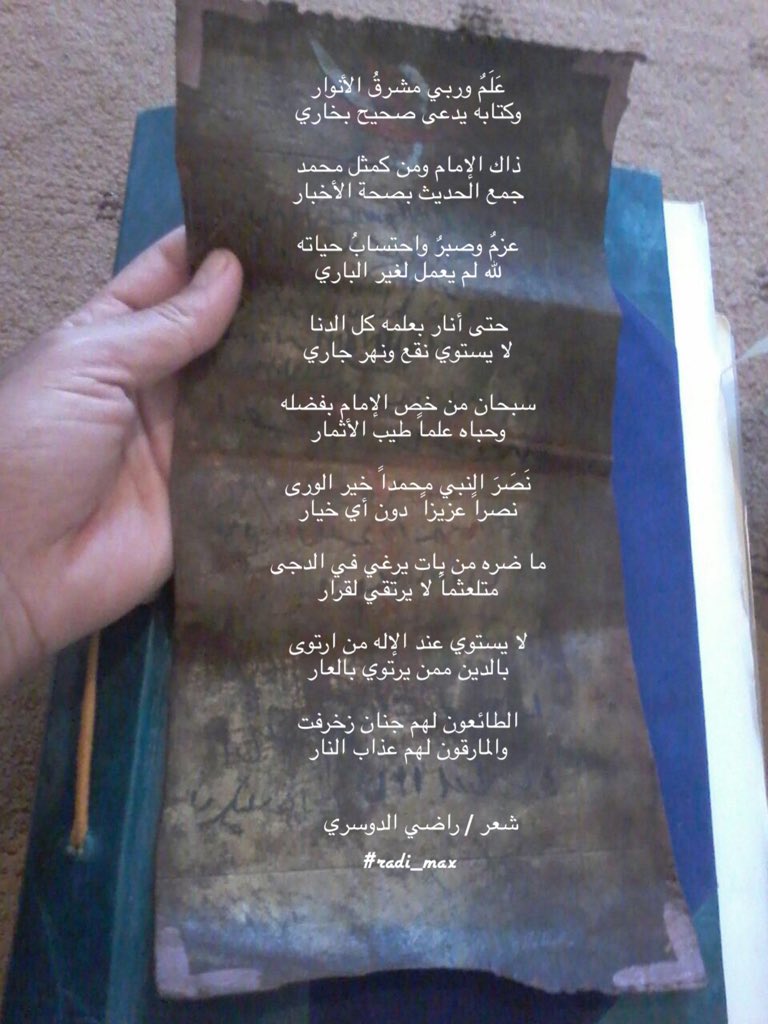 عَلَمٌ وربي مشرقُ الأنوار
وكتابه يدعى صحيح بخاري
ذاك الإمام ومن كمثل محمد
جمع الحديث بصحة الأخبار
عزمٌ وصبرٌ واحتسابُ حياته
لله لم يعمل لغير الباري
حتى أنار بعلمه كل الدنا
لا يستوي نقع ونهر جاري
سبحان من خص الإمام بفضله
وحباه علماً طيب الأثمار
نَصَرَ النبي محمداً خير الورى
نصراً عزيزاً دون أي خيار
ما ضره من بات يرغي في الدجى
متلعثماً لا يرتقي لقرار
لا يستوي عند الإله من ارتوى
بالدين ممن يرتوي بالعار
الطائعون لهم جنان زخرفت
والمارقون لهم عذاب النار
شعر / راضي الدوسري
#radi_max